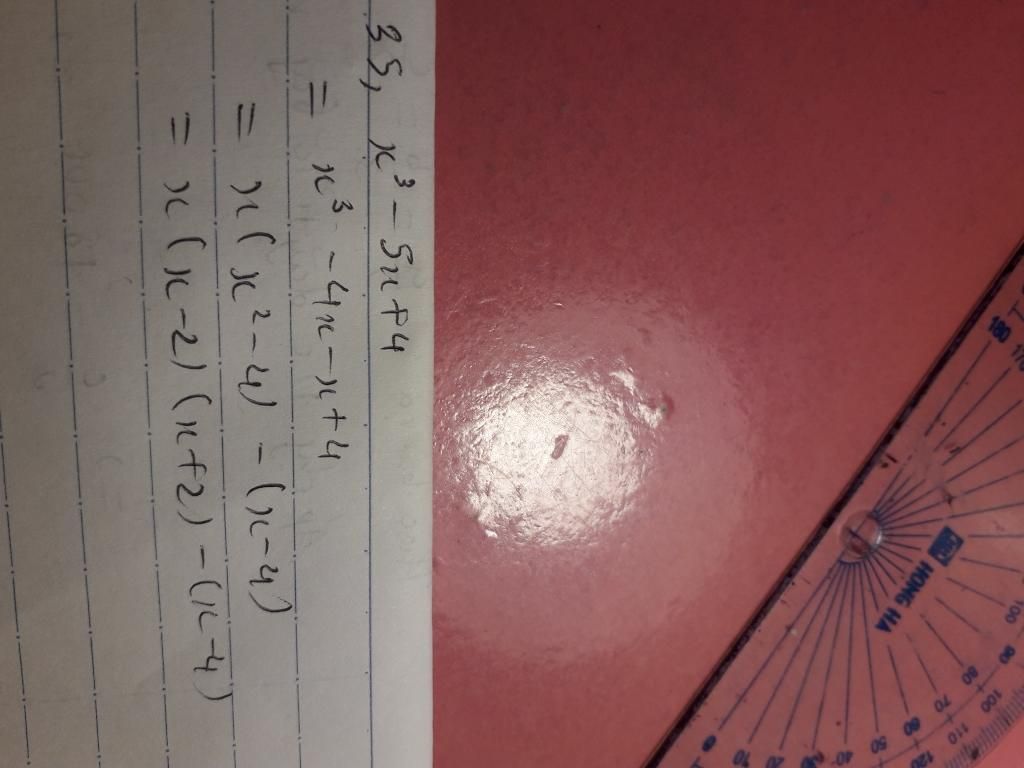 35, x³ - 5x + 4
= x³ - 4x - x + 4
= x(x² - 4) - (x - 4)
= x(x - 2)(x + 2) - (x - 4)
HONG HA
180
0
10
20
40
50
60
70
80
90
100
110
120
100